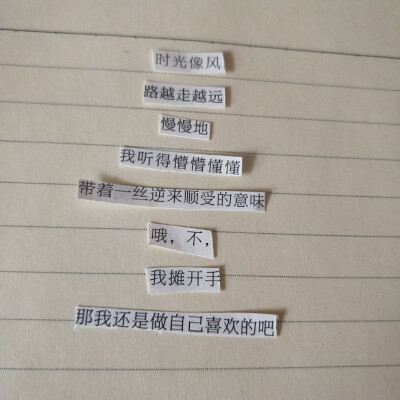 时光像风
路越走越远
慢慢地
我听得懵懵懂懂
带着一丝逆来顺受的意味
哦，不，
我摊开手
那我还是做自己喜欢的吧